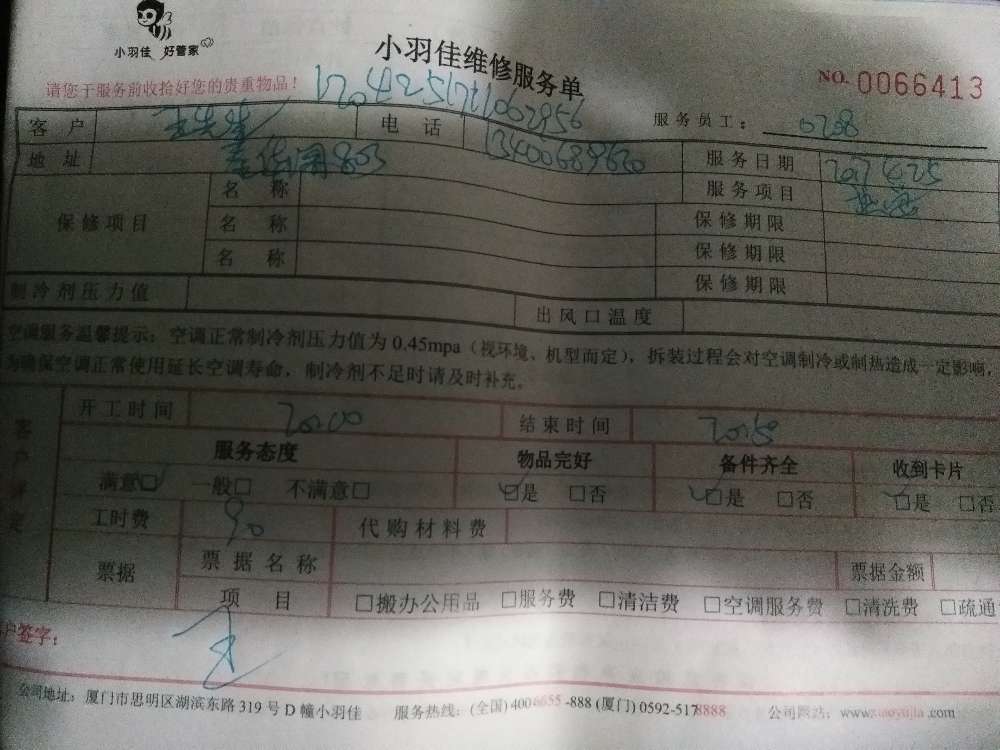 小羽佳 好管家
小羽佳维修服务单
NO. 0066413
请您于服务前收拾好您的贵重物品！
1704251711062956
服务员工： 0208
客户 王先生 电话 13400689620
地址 803 服务日期 2017 4 25
名称 服务项目
保修项目 名称 保修期限
名称 保修期限
保修期限
制冷剂压力值 出风口温度
空调服务温馨提示：空调正常制冷剂压力值为 0.45mpa（视环境、机型而定），拆装过程会对空调制冷或制热造成一定影响，
为确保空调正常使用延长空调寿命，制冷剂不足时请及时补充。
开工时间 20:00 结束时间 20:50
服务态度 物品完好 备件齐全 收到卡片
满意□ 一般□ 不满意□ □是 □否 □是 □否 □是 □否
工时费 90 代购材料费
票据 票据名称 票据金额
项目 □搬办公用品 □服务费 □清洁费 □空调服务费 □清洗费 □疏通
户签字： 王
公司地址：厦门市思明区湖滨东路 319 号 D 幢小羽佳 服务热线：(全国) 400 6655 -888 (厦门) 0592-5178888 公司网站：www.xiaoyujia.com